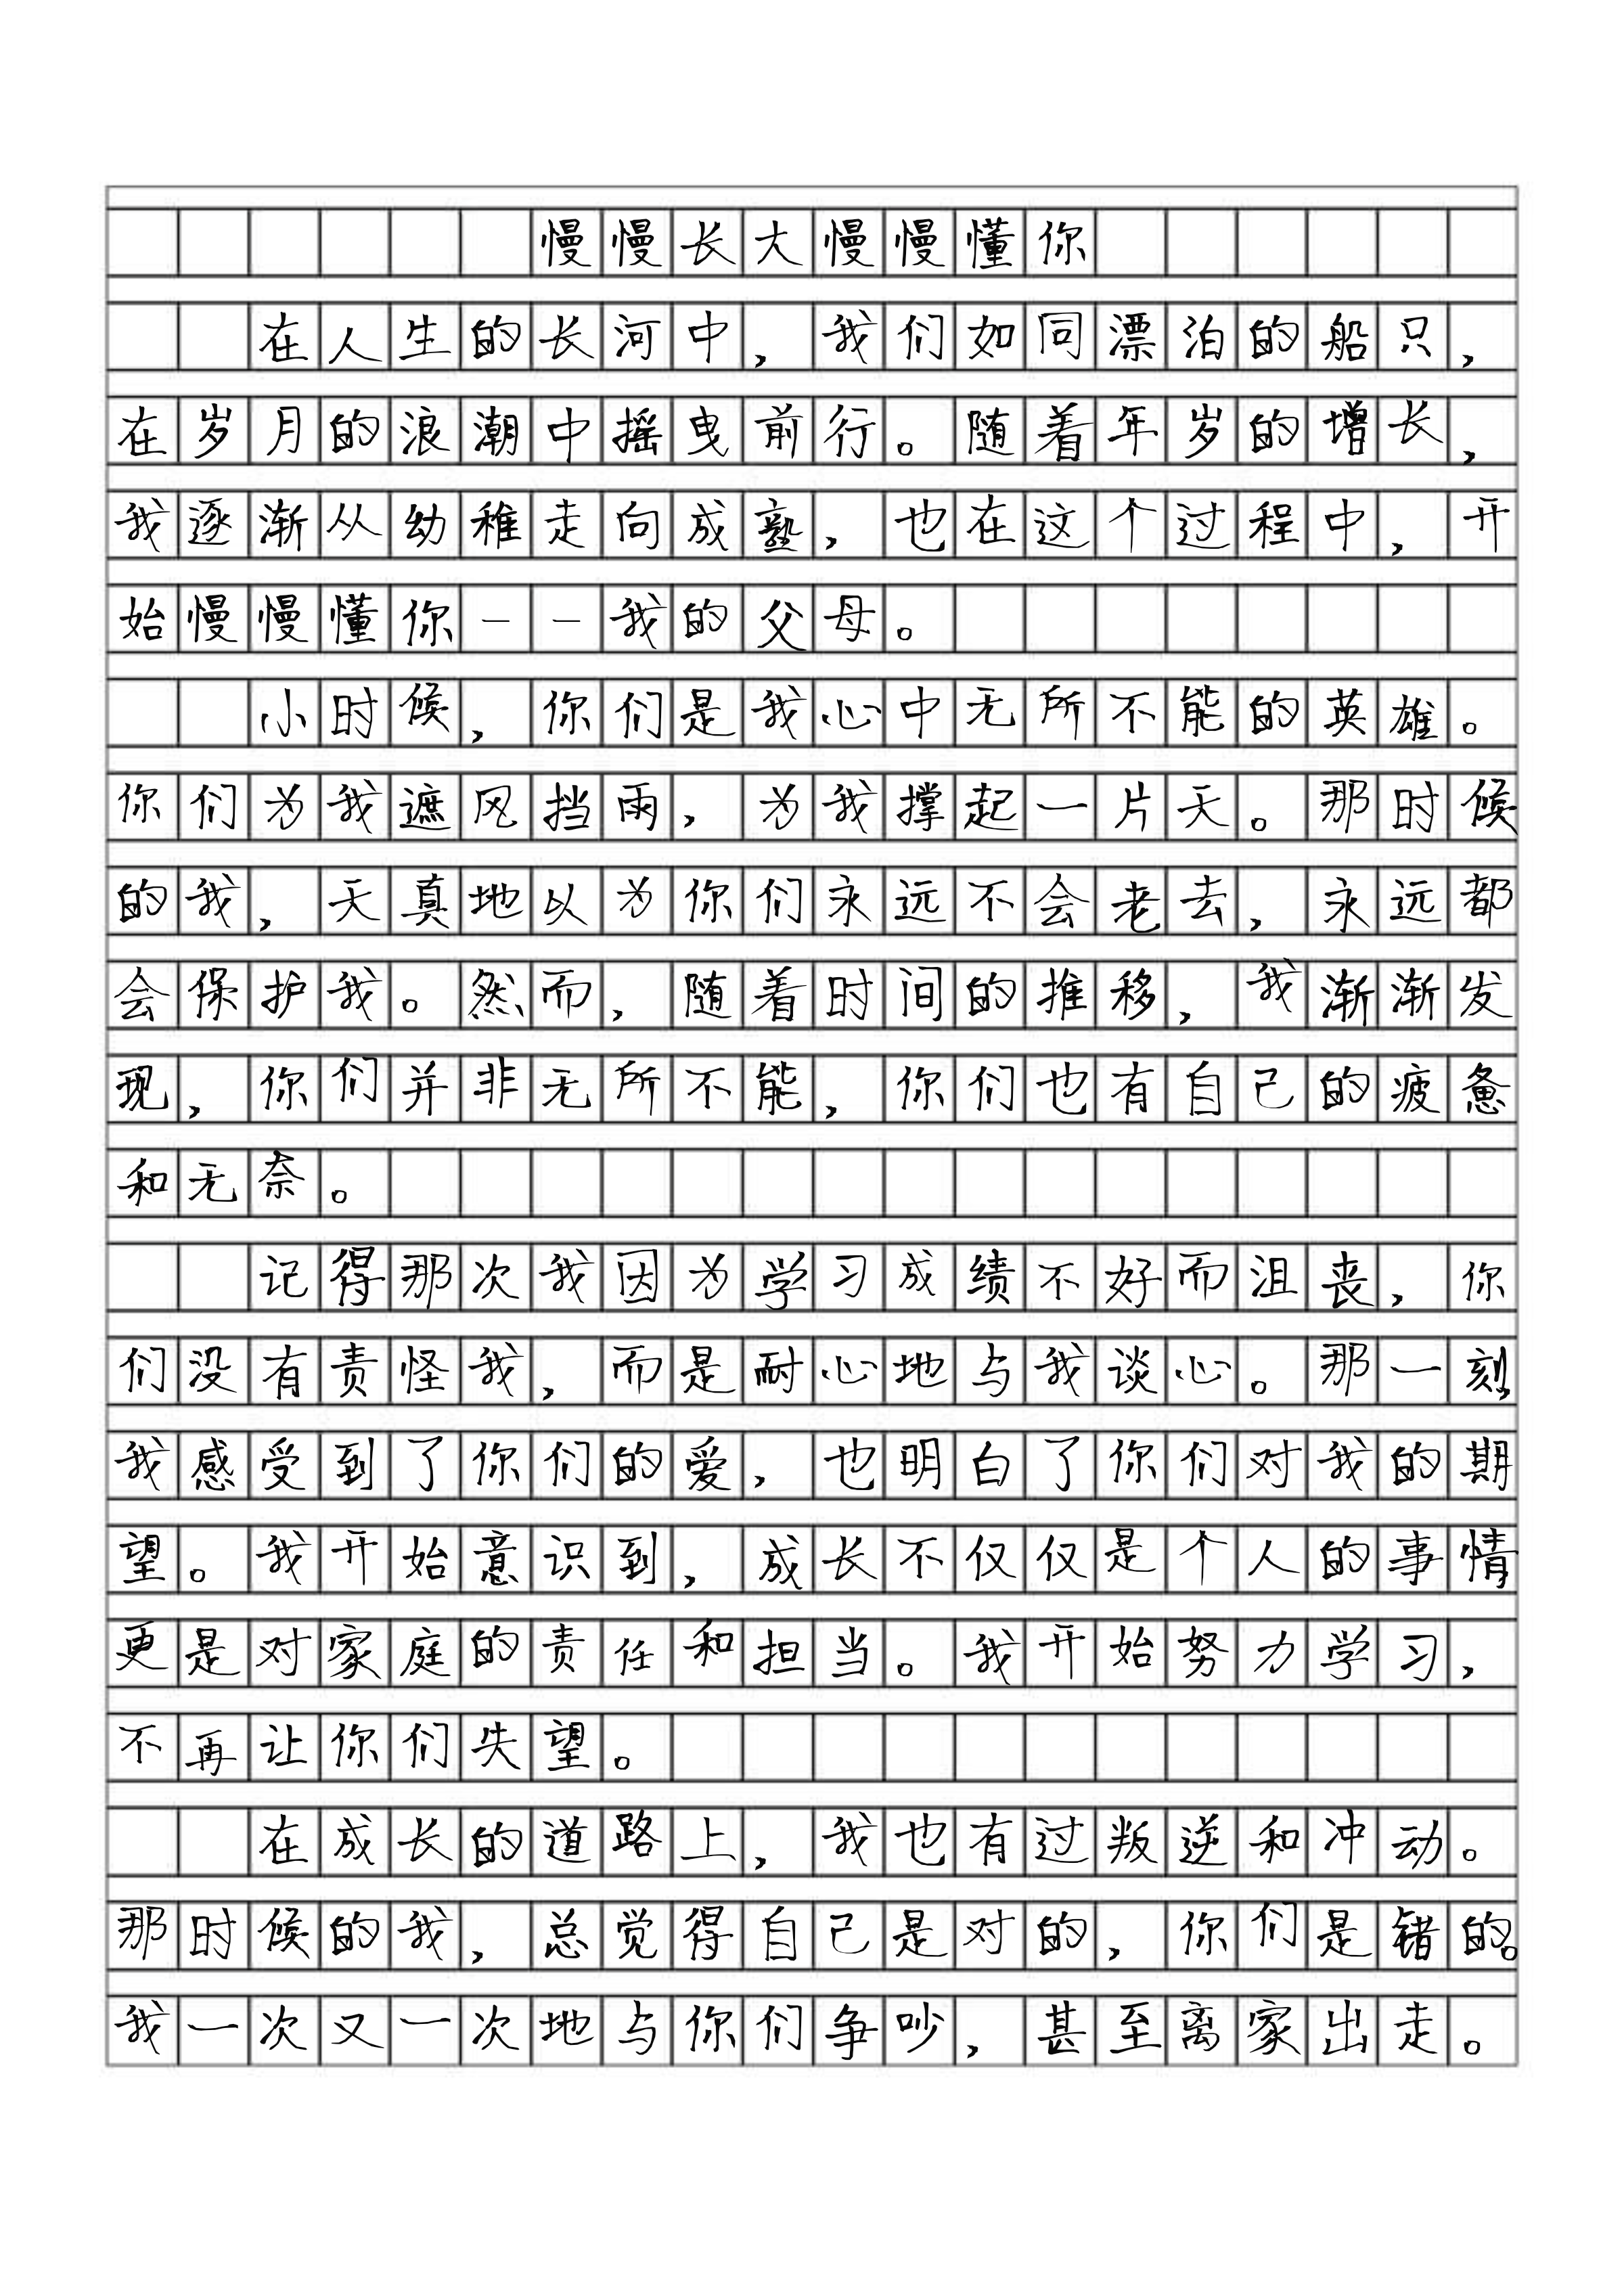 慢慢长大慢慢懂你
在人生的长河中，我们如同漂泊的船只，
在岁月的浪潮中摇曳前行。随着年岁的增长，
我逐渐从幼稚走向成熟，也在这个过程中，开
始慢慢懂你——我的父母。
小时候，你们是我心中无所不能的英雄。
你们为我遮风挡雨，为我撑起一片天。那时候
的我，天真地以为你们永远不会老去，永远都
会保护我。然而，随着时间的推移，我渐渐发
现，你们并非无所不能，你们也有自己的疲惫
和无奈。
记得那次我因为学习成绩不好而沮丧，你
们没有责怪我，而是耐心地与我谈心。那一刻，
我感受到了你们的爱，也明白了你们对我的期
望。我开始意识到，成长不仅仅是个人的事情，
更是对家庭的责任和担当。我开始努力学习，
不再让你们失望。
在成长的道路上，我也有过叛逆和冲动。
那时候的我，总觉得自己是对的，你们是错的。
我一次又一次地与你们争吵，甚至离家出走。